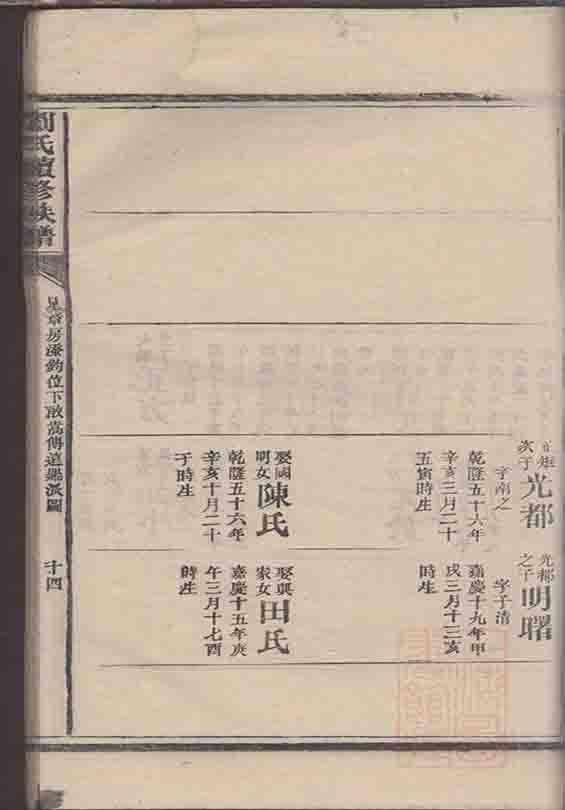 次子
光都
字南之
乾隆五十六年
辛亥三月二十
五寅時生
娶國
明女
陳氏
乾隆五十六年
辛亥十月二十
子時生
光都
之子
明曙
字子清
嘉慶十九年甲
戌三月十三亥
時生
娶興
家女
田氏
嘉慶十五年庚
午三月十七酉
時生
劉氏續修族譜
章房濂鈞位下啟嵩傳道派圖
十四